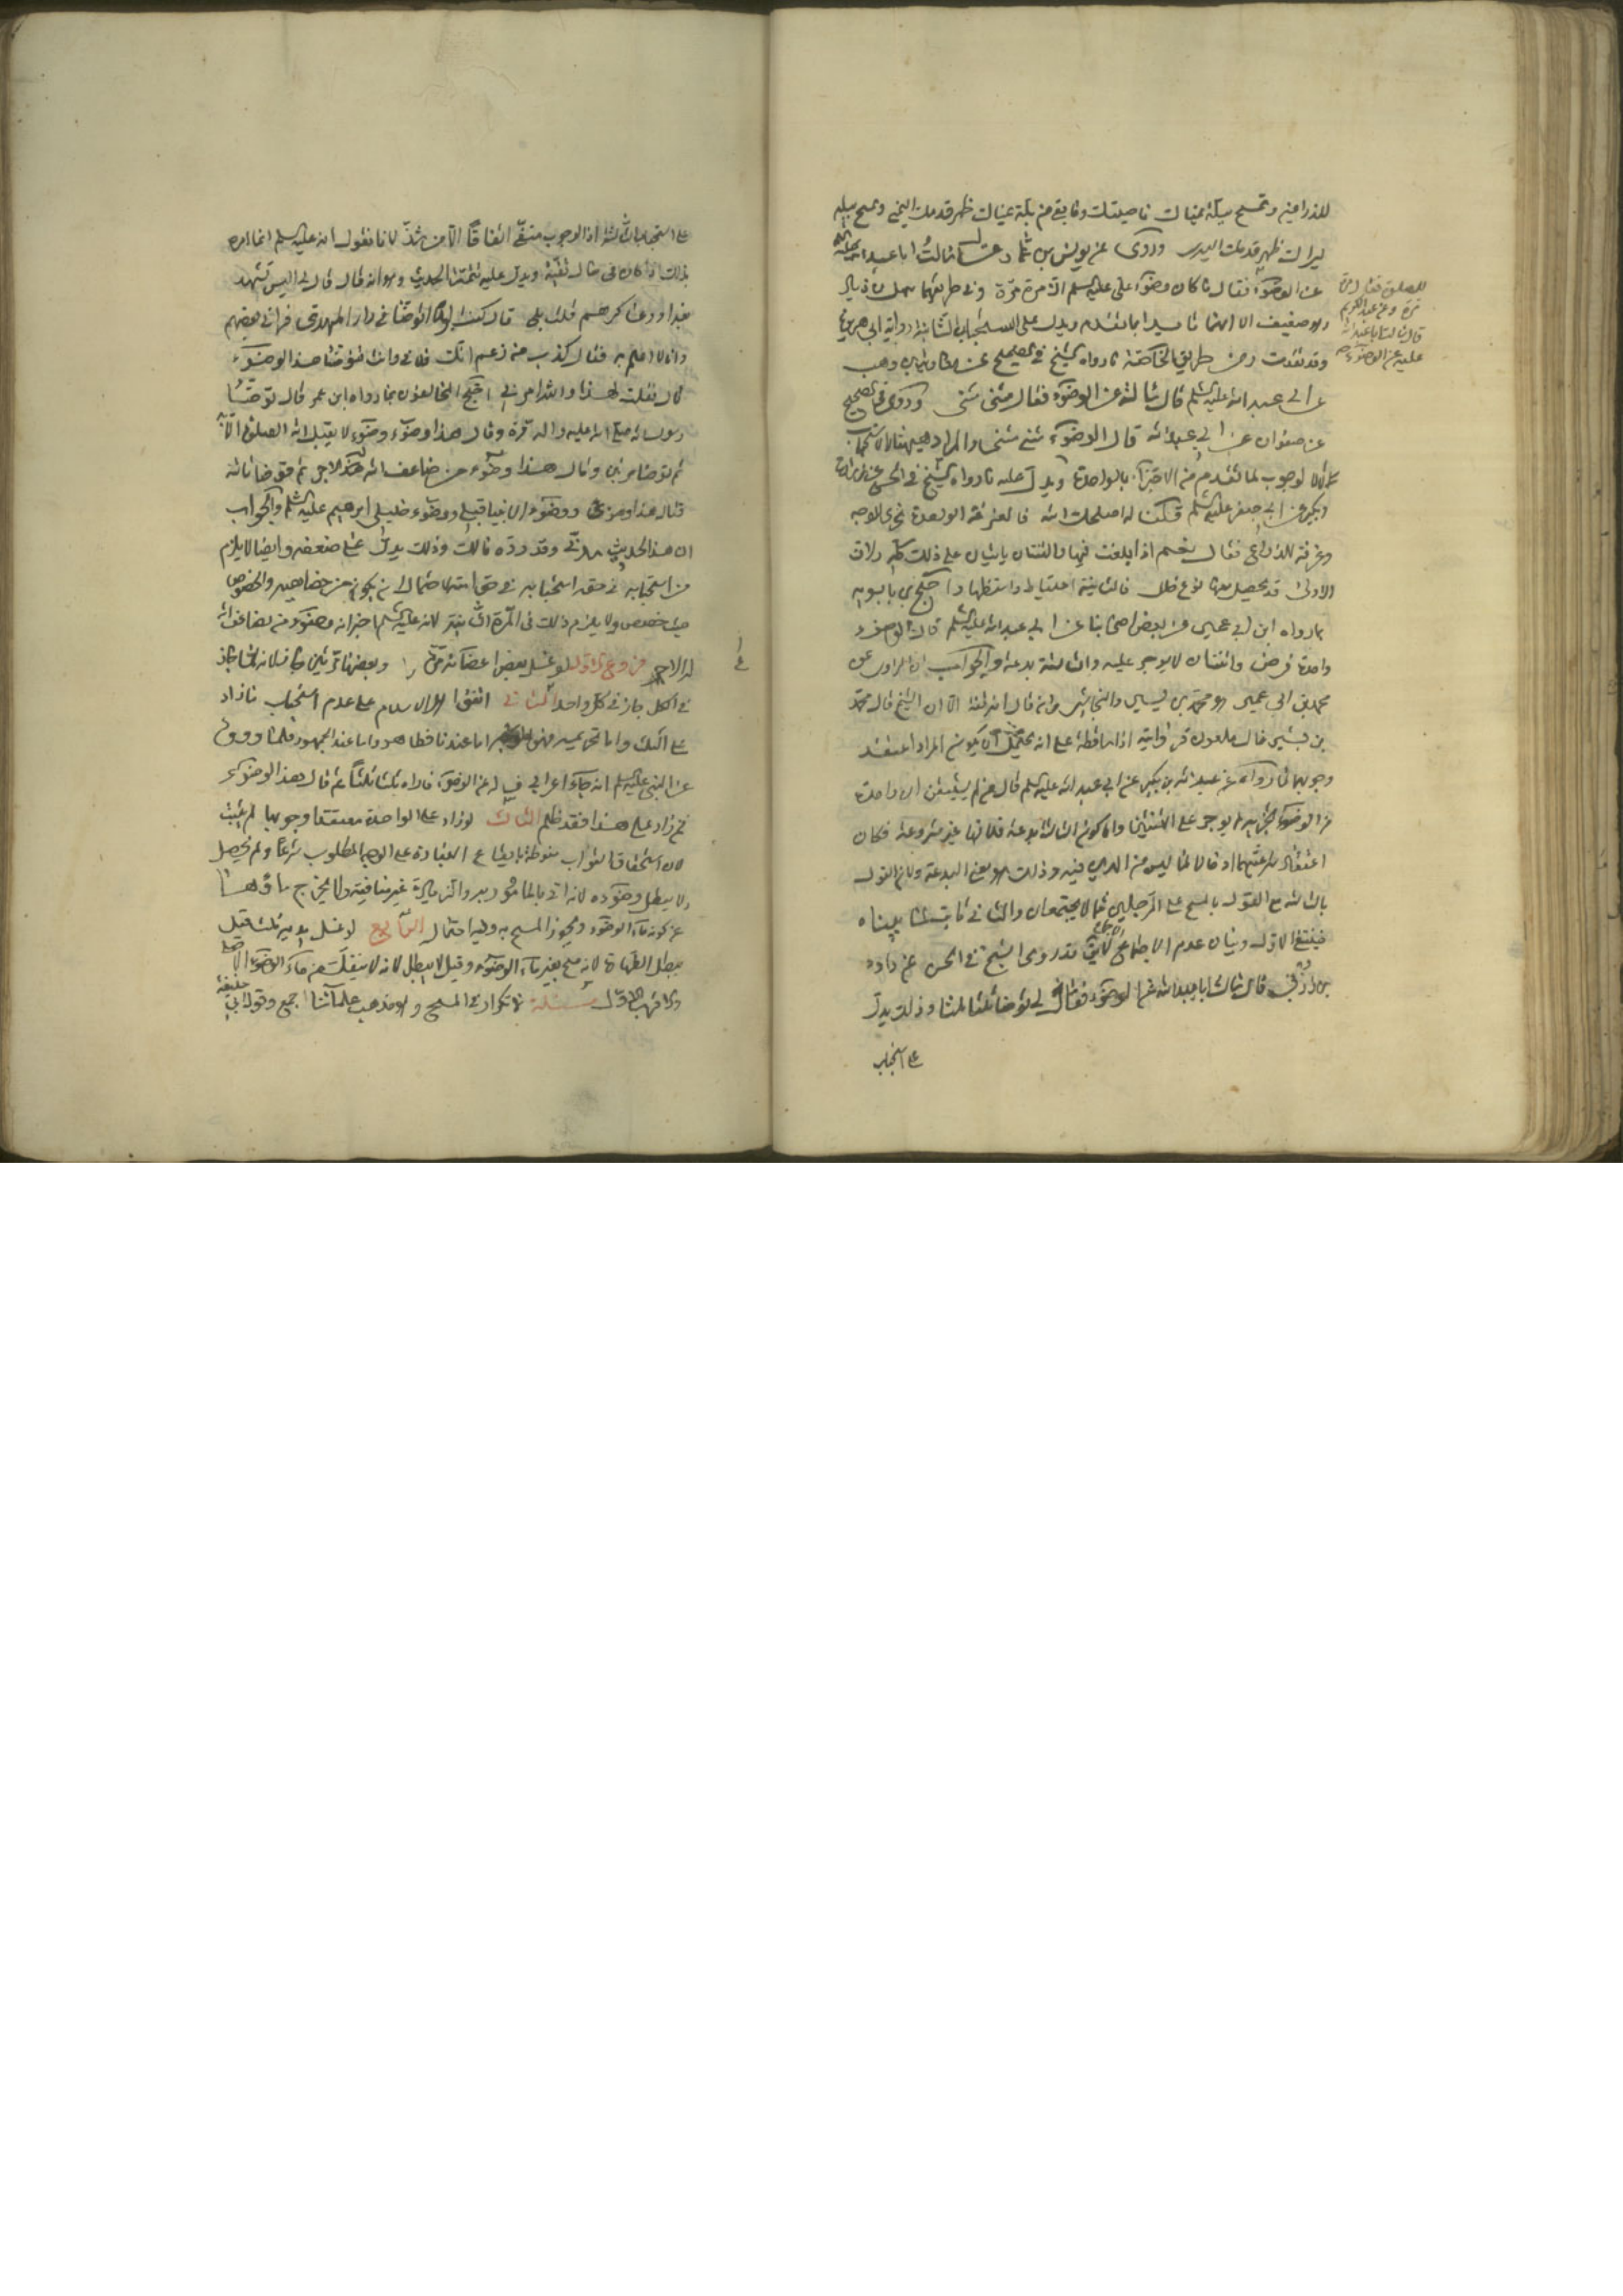 للذراعين وتمسح ببلة يمناك ناصيتك وما بقي من بلة يمناك ظهر قدمك اليمنى وتمسح ببلة
يسراك ظهر قدمك اليسرى وروى عن يونس بن عمار قال سالت ابا عبد الله عليه السلام
عن الوضوء فقال ما كان وضوء علي عليه السلام الا مرة مرة وفي طريقهما سهل بن زياد
وهو ضعيف الا انها تأيدا بما تقدم ويدل على استحباب الثانية رواية ابي هريرة
وقد تقدمت ومن طريق الخاصة ما رواه الشيخ في الصحيح عن معاوية بن وهب
عن ابي عبد الله عليه السلام قال سالته عن الوضوء فقال مثنى مثنى وروى في الصحيح
عن صفوان عن ابي عبد الله قال الوضوء مثنى مثنى والمراد بهما الاستحباب
لا الوجوب لما تقدم من الاجتزاء بالواحدة ويدل عليه ما رواه الشيخ في الحسن عن زرارة
وبكير عن ابي جعفر عليه السلام قلنا له اصلحك الله فالغرفة الواحدة تجزي للوجه
وغرفة للذراع فقال نعم اذا بالغت فيها والثنتان ياتيان على ذلك كله ولان
الاولى قد يحصل معها نوع خلل فالثانية احتياط واستظهار احتج ابن بابويه
بما رواه ابن ابي عمير عن بعض اصحابنا عن ابي عبد الله عليه السلام قال الوضوء
واحدة فرض واثنتان لا يوجر عليه والثالثة بدعة والجواب ان الراوي عن
محمد بن ابي عمير هو محمد بن بشير والنجاشي وان قال انه ثقة الا ان الشيخ قال محمد
بن بشير غال ملعون فروايته اذا ساقطة على انه يحتمل ان يكون المراد اعتقد
وجوبهما لما رواه عن عبد الله بن بكير عن ابي عبد الله عليه السلام قال من لم يستيقن ان واحدة
من الوضوء تجزيه لم يوجر على الثنتين واما كون الثالثة بدعة فلانها غير مشروعة فكان
اعتقاد شرعيتها ادخالا لما ليس من الدين فيه وذلك هو معنى البدعة ولان القول
بالثالثة مع القول بالمسح على الرجلين مما لا يجتمعان والثاني ثابت لما بيناه
فينتفي الاول وبيان عدم الاجتماع لا يقال قد روى الشيخ في الحسن عن داود
بن زربي قال سالت ابا عبد الله عن الوضوء فقال لي توضأ ثلثا ثلثا وذلك يدل
على استحباب
للصلوة فقال مرة
مرة وعن عبد الكريم
قال سالت ابا عبد الله
عليه عن الوضوء
على استحباب الثالثة اذ الوجوب منتفي اتفاقا الا من شذ لانا نقول انه عليه السلم انما امره
بذلك اذا كان في حال تقية ويدل عليه تتمة الحديث وهو انه قال قال لي اليس تشهد
بغداد وعساكرهم قلت بلى قال كنت يوما اتوضأ في دار المهدي فرآني بعضهم
وانا لا اعلم به فقال كذب من زعم انك فلاني وانت تتوضأ هذا الوضوء
قال فقلت لهذا والله امرني احتج المخالفون بما رواه ابن عمر قال توضأ
رسول الله صلى الله عليه واله مرة وقال هذا وضوء لا يقبل الله الصلوة الا به
ثم توضأ مرتين وقال هذا وضوء من ضاعف الله له الاجر ثم توضأ ثالثة
فقال هذا وضوئي ووضوء الانبياء قبلي ووضوء خليلي ابرهيم عليه السلم والجواب
ان هذا الحديث وقد رده مالك وذلك يدل على ضعفه وايضا لا يلزم
من استحبابه في حقه استحبابه في حق امته لاحتمال ان يكون من خصايصه والخصوص
حيث خصص ولا يلزم ذلك في المرة الثانية لانه عليه السلم اخبر انه وضوء من يضاعف الله
له الاجر فروع الاول لو غسل بعض اعضائه مرة وبعضها مرتين جاز لانه لما جاز
في الكل جاز في كل واحد الثاني اتفق اهل الاسلام على عدم استحباب ما زاد
على الثلث واما تحريمه اما عندنا فظاهر واما عند الجمهور فلما رووه
عن النبي عليه السلم انه جاء اعرابي فساله عن الوضوء فاراه ثلثا ثلثا ثم قال هذا الوضوء
فمن زاد على هذا فقد ظلم الثالث لو زاد على الواحدة معتقدا وجوبها لم يثبت
لان استحقاق الثواب منوط بايقاع العبادة على الوجه المطلوب شرعا ولم يحصل
ولا يبطل وضوءه لانه اتى بالمامور به والزيادة غير منافية ولا يخرج ماؤها
عن كونه ماء الوضوء ويجوز المسح به وفيه احتمال الرابع لو غسل يديه ثلثا قيل
يبطل الطهارة لانه مسح بغير ماء الوضوء وقيل لا يبطل لانه لا ينفك عن ماء الوضوء الاصلي
والاقرب الاول مسئلة لا تكرار في المسح وهو مذهب علمائنا اجمع وقول ابي
حنيفة